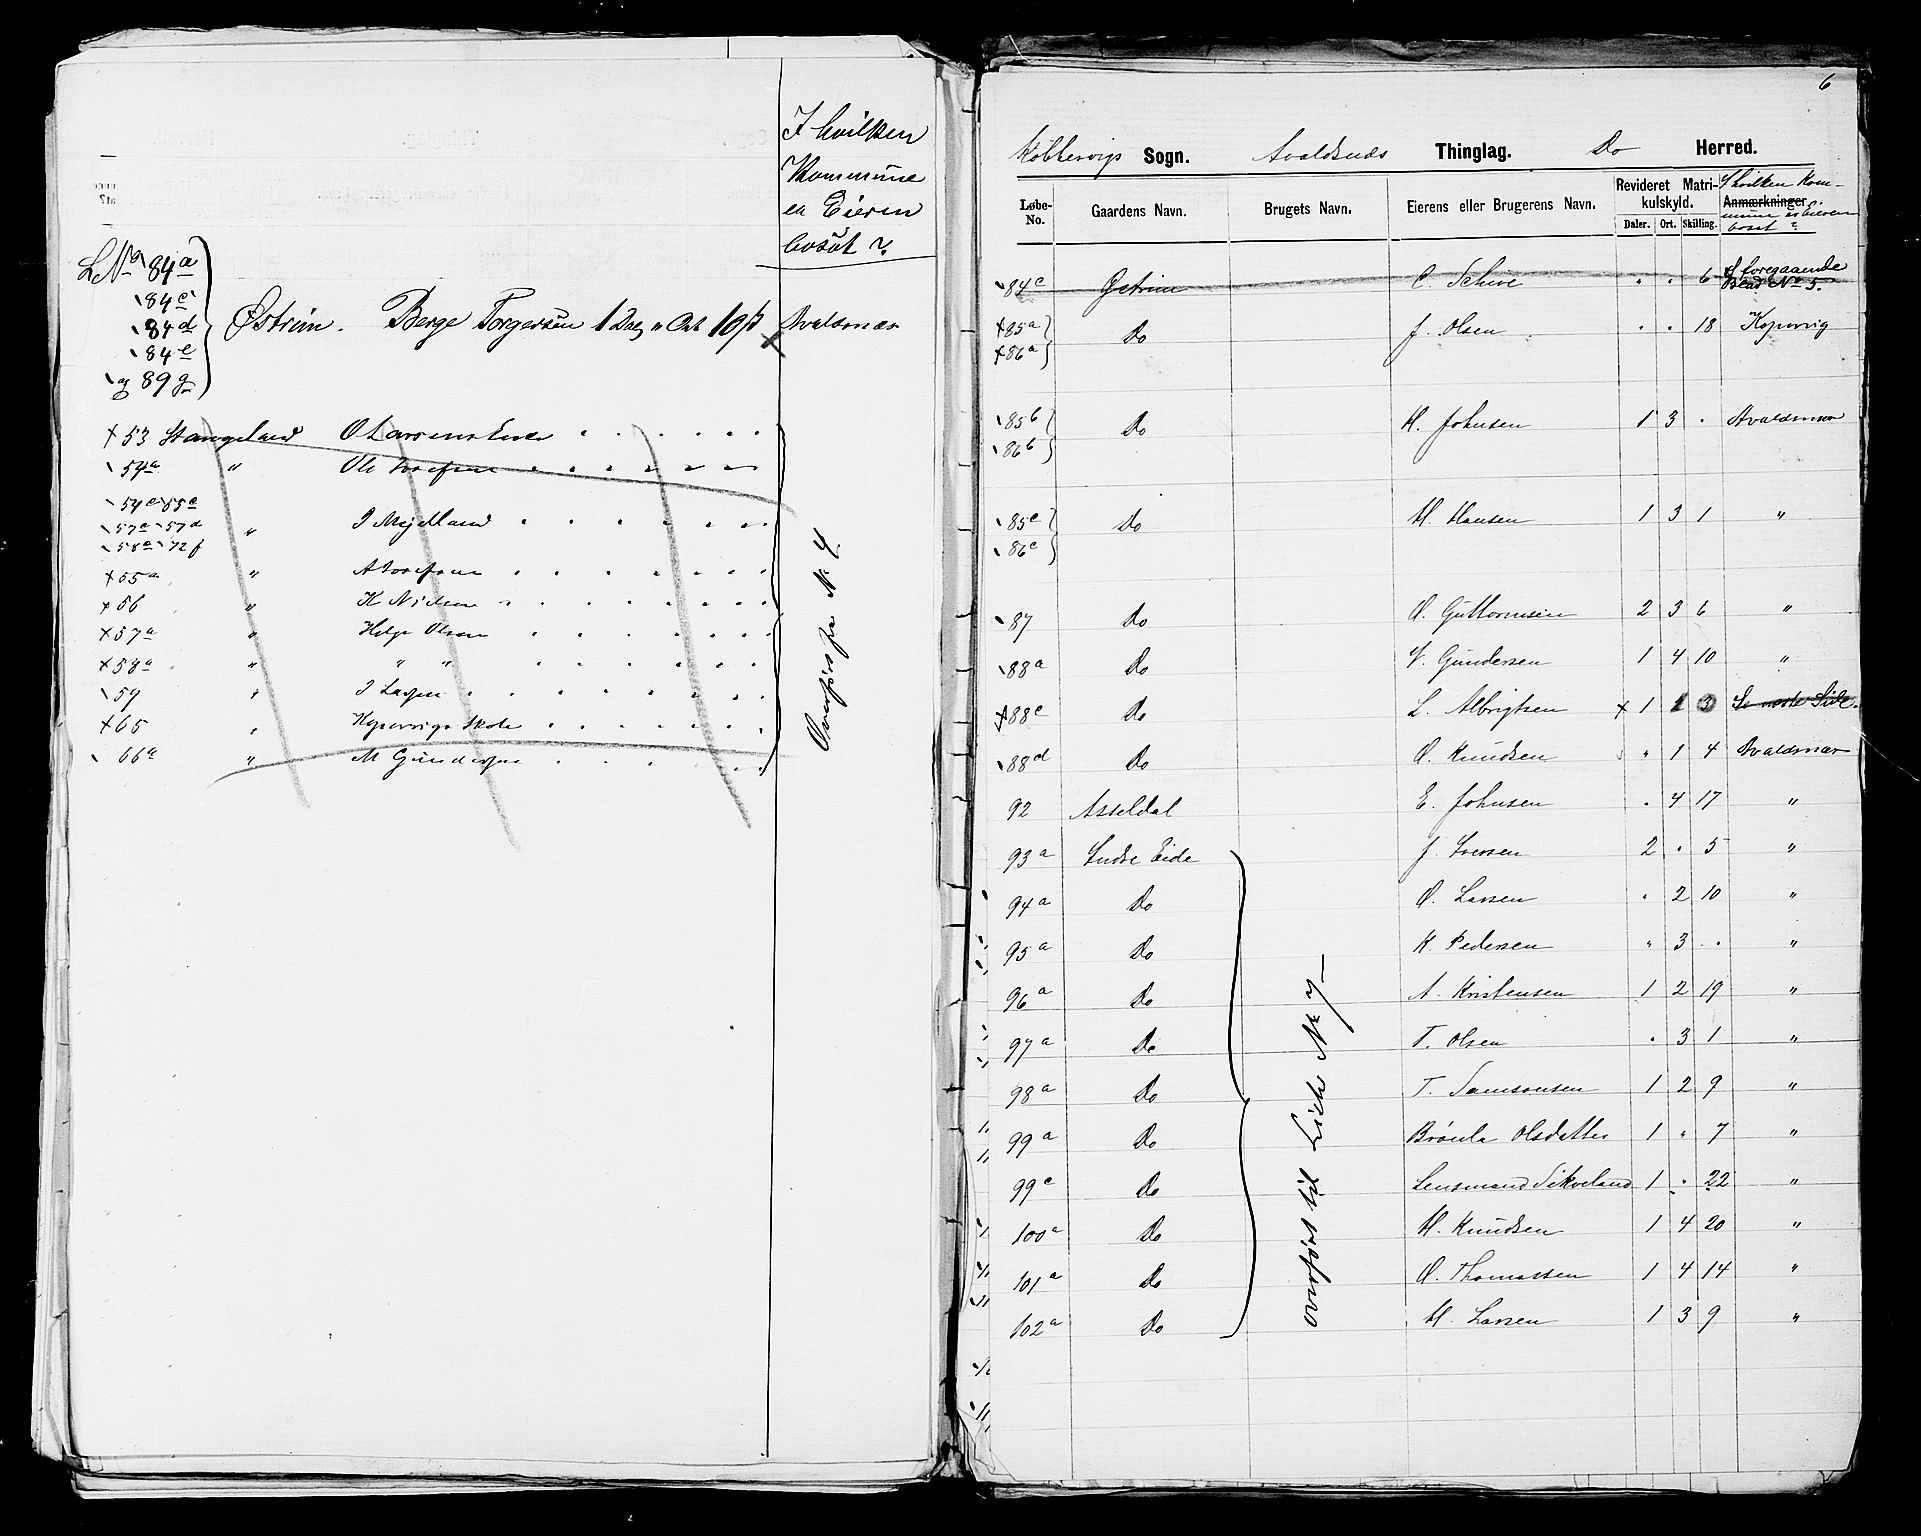 I hvilken
Kommune
er Eieren
bosat ?
LNo 84a
84c
84d
84e
og 89g
Østrein. Berge Torgersen 1 Dal, " Ort 10 β Avaldsnæs
× 53 Stangeland O Larsens Enke
54a " Ole Josefsen
54c 55c
57c 57d " J Mejelland
58c 72f
× 55a " A Josefsen
× 56 " K Nielsen
× 57a " Helge Olsen
× 58a " " "
59 " J Larsen
× 65 " Kopervigs Skole
66a " M Gundersen
Overført fra N 4
6
Kobbervigs Sogn. Avaldsnæs Thinglag. Do Herred.
Løbe-No. Gaardens Navn. Brugets Navn. Eierens eller Brugerens Navn. Revideret Matrikulskyld. Daler. Ort. Skilling. Anmærkninger
I hvilken Kommune er Eieren bosat ?
84c Østrein C. Schive " " 6 Se foregaaende Blad No 5.
× 85a × 86a Do J. Olsen " " 18 Kopervig
85b 86b Do H. Johnsen 1 3 " Avaldsnæs
85c 86c Do H. Hansen 1 3 1 "
87 Do O. Guttormsen 2 3 6 "
88a Do V. Gundersen 1 4 10 "
× 88c Do L. Albrigtsen × 1 1 3 Se næste Side.
88d Do O. Knudsen " 1 4 Avaldsnæs
92 Asseldal E. Johnsen " 4 17 "
93a Indre Eide J. Iversen 2 " 5 "
94a Do O. Larsen " 2 10 "
95a Do K. Pedersen " 3 " "
96a Do A. Kristensen 1 2 19 "
97a Do T. Olsen " 3 1 "
98a Do T. Samsonsen 1 2 9 "
99a Do Brønla Olsdatter 1 " 7 "
99c Do Lensmand Sikveland 1 " 22 "
100a Do H. Knudsen 1 4 20 "
101a Do O. Thomassen 1 4 14 "
102a Do H. Larsen 1 3 9 "
overført til Liste No 7